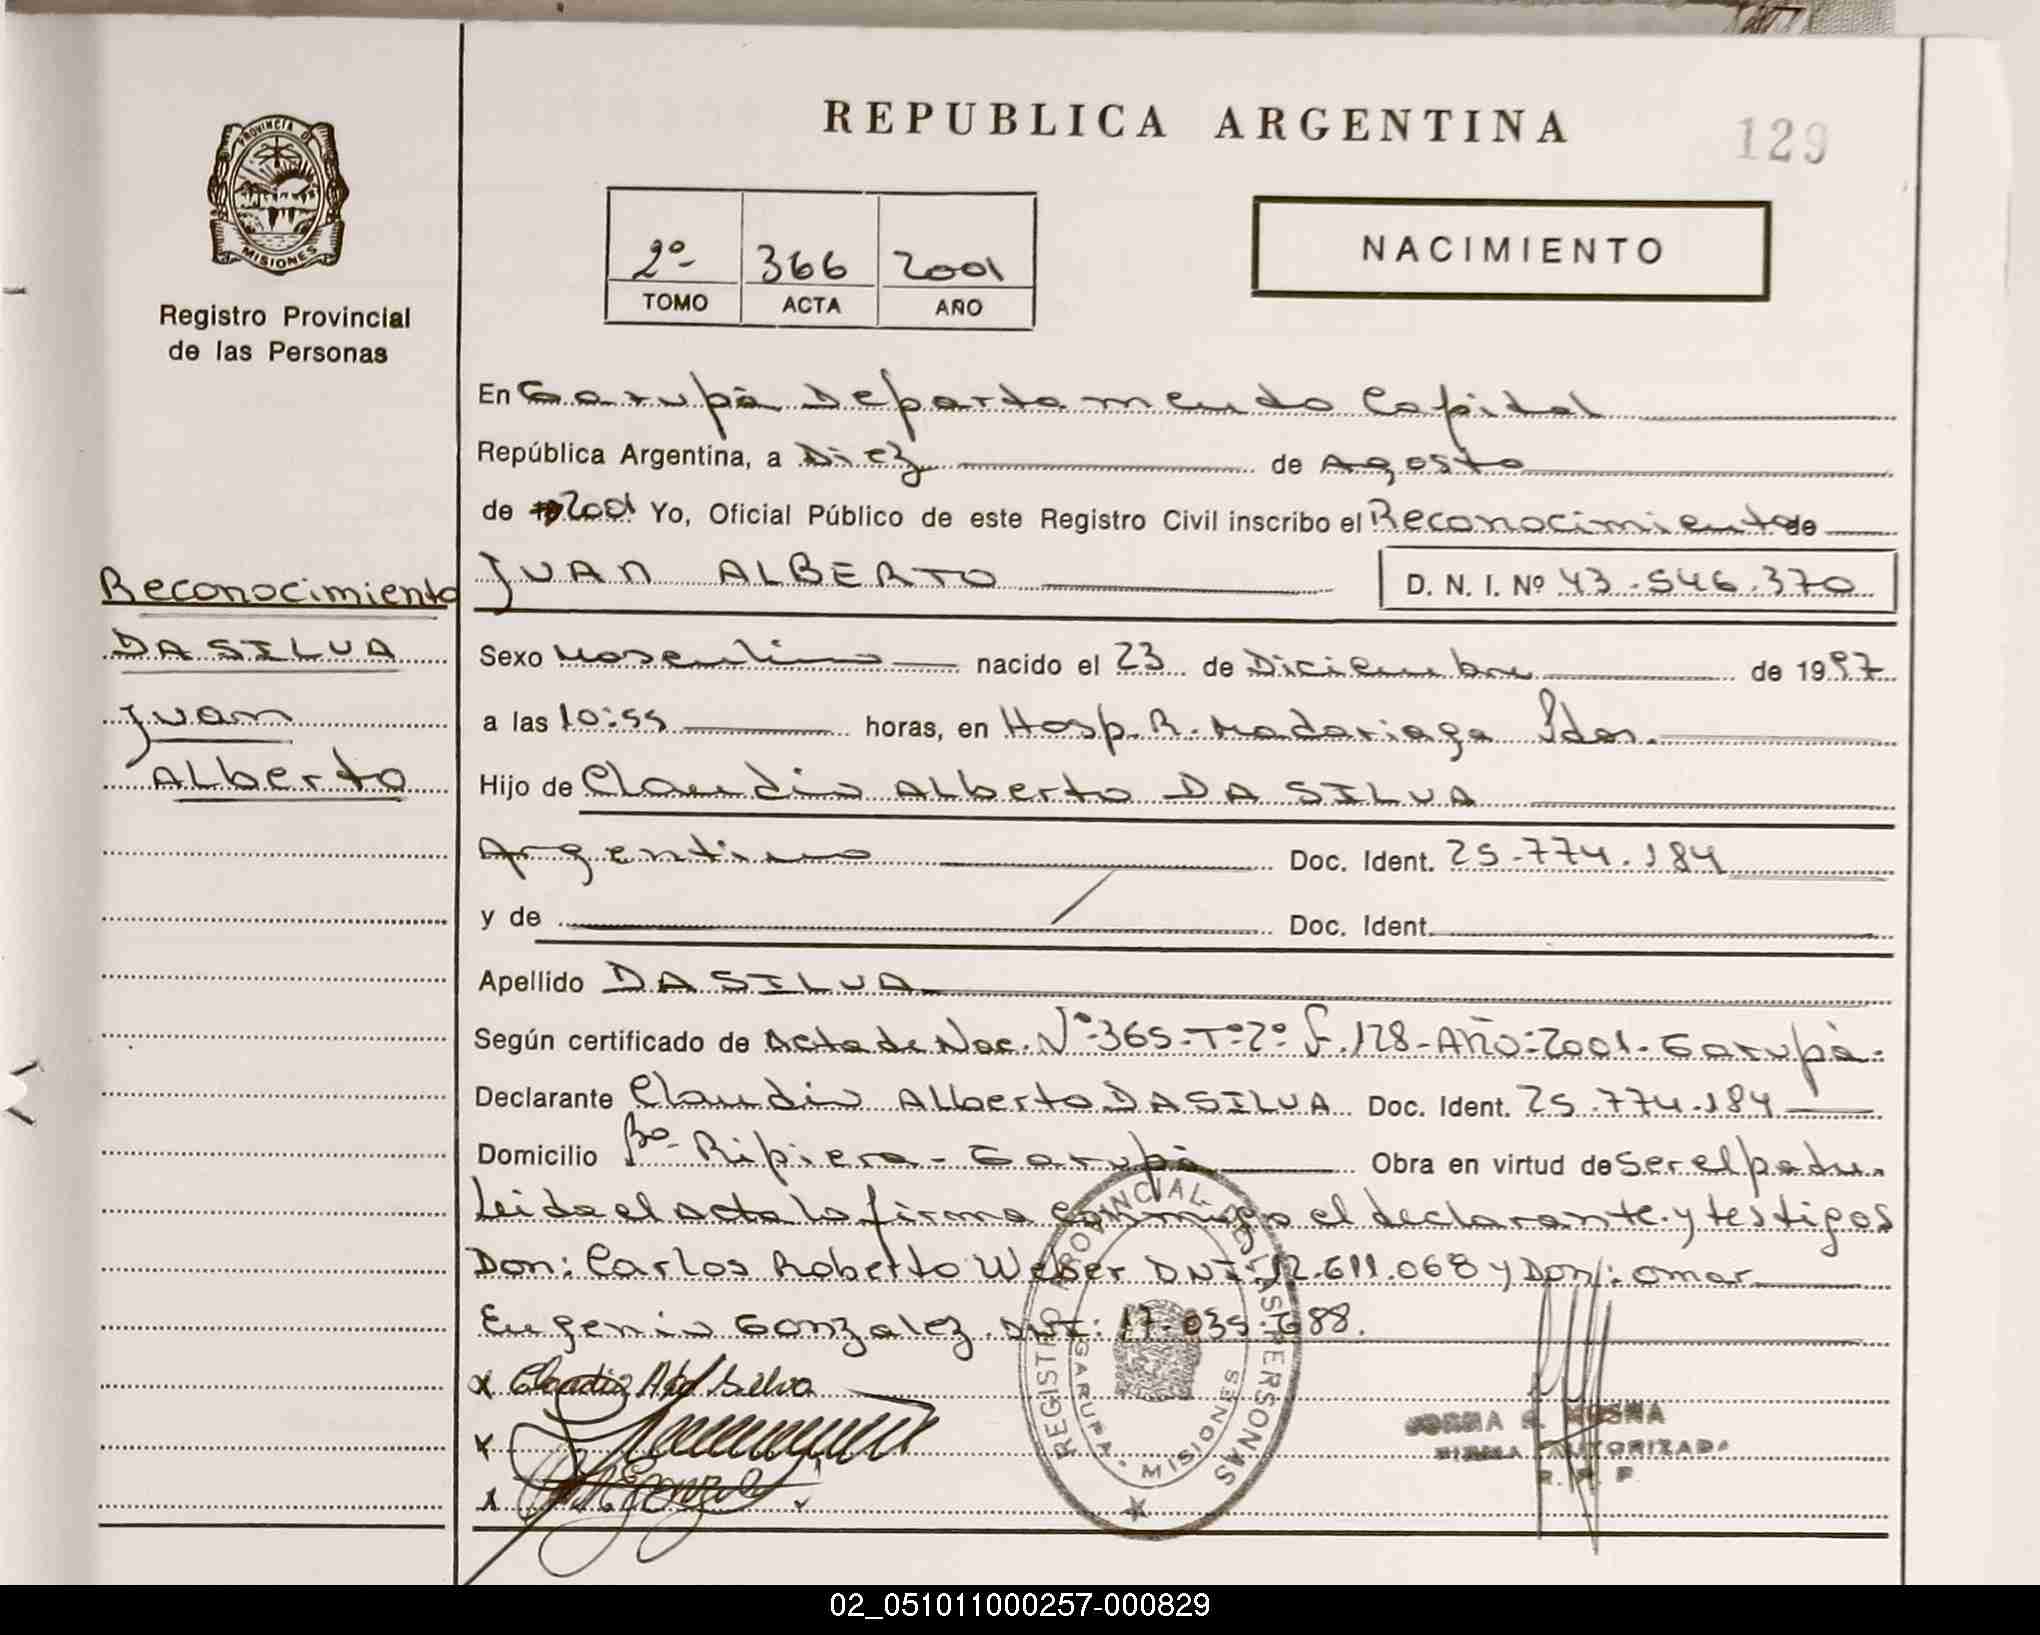 REPUBLICA ARGENTINA
129
PROVINCIA DE
MISIONES
Registro Provincial
de las Personas
2º 366 2001
TOMO ACTA AÑO
NACIMIENTO
En Garupá Departamento Capital
República Argentina, a Diez de Agosto
de 2001 Yo, Oficial Público de este Registro Civil inscribo el Reconocimiento de
JUAN ALBERTO D. N. I. Nº 43.546.370
Reconocimiento
DA SILVA
Juan
Alberto
Sexo Masculino nacido el 23 de Diciembre de 1997
a las 10:55 horas, en Hosp. R. Madariaga Pdas.
Hijo de Claudio Alberto DA SILVA
Argentino Doc. Ident. 25.774.184
y de Doc. Ident.
Apellido DA SILVA
Según certificado de Acta de Nac. Nº 365-Tº 2º F.128-Año:2001-Garupá.
Declarante Claudio Alberto DA SILVA Doc. Ident. 25.774.184
Domicilio Bº Ripiera - Garupá Obra en virtud de ser el padre.
Leida el acta la firma conmigo el declarante y testigos
Don: Carlos Roberto Weber DNI: 12.611.068 y Don: Omar
Eugenio Gonzalez. DNI: 17.035.688.
x Claudio Silva
x
x
REGISTRO PROVINCIAL DE LAS PERSONAS
GARUPA - MISIONES
FIRMA AUTORIZADA
R. P. P.
02_051011000257-000829